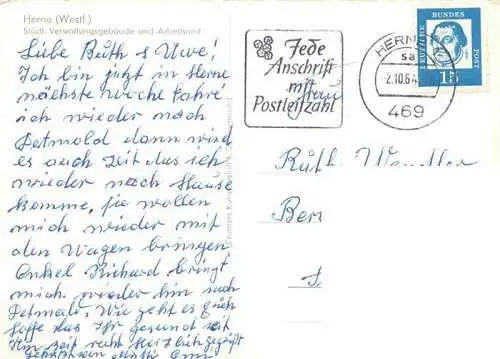 Herne (Westf.)
Städt. Verwaltungsgebäude und Arbeitsamt
Liebe Ruth & Uwe!
Ich bin jetzt in Herne
nächste Woche fahre
ich wieder nach
Detmold dann wird
es auch Zeit das ich
wieder nach Hause
komme, sie wollen
mich wieder mit
den Wagen bringen
Onkel Richard bringt
mich wieder hin nach
Detmold. Wie geht es Euch
hoffe das Ihr gesund seit
Nun seit recht herzlich gegrüßt
von
Jede
Anschrift
mit
Postleitzahl
HERNE
sa
-2.10.64
469
DEUTSCHE
BUNDES
POST
15
Frau
Ruth Wendler
Ber